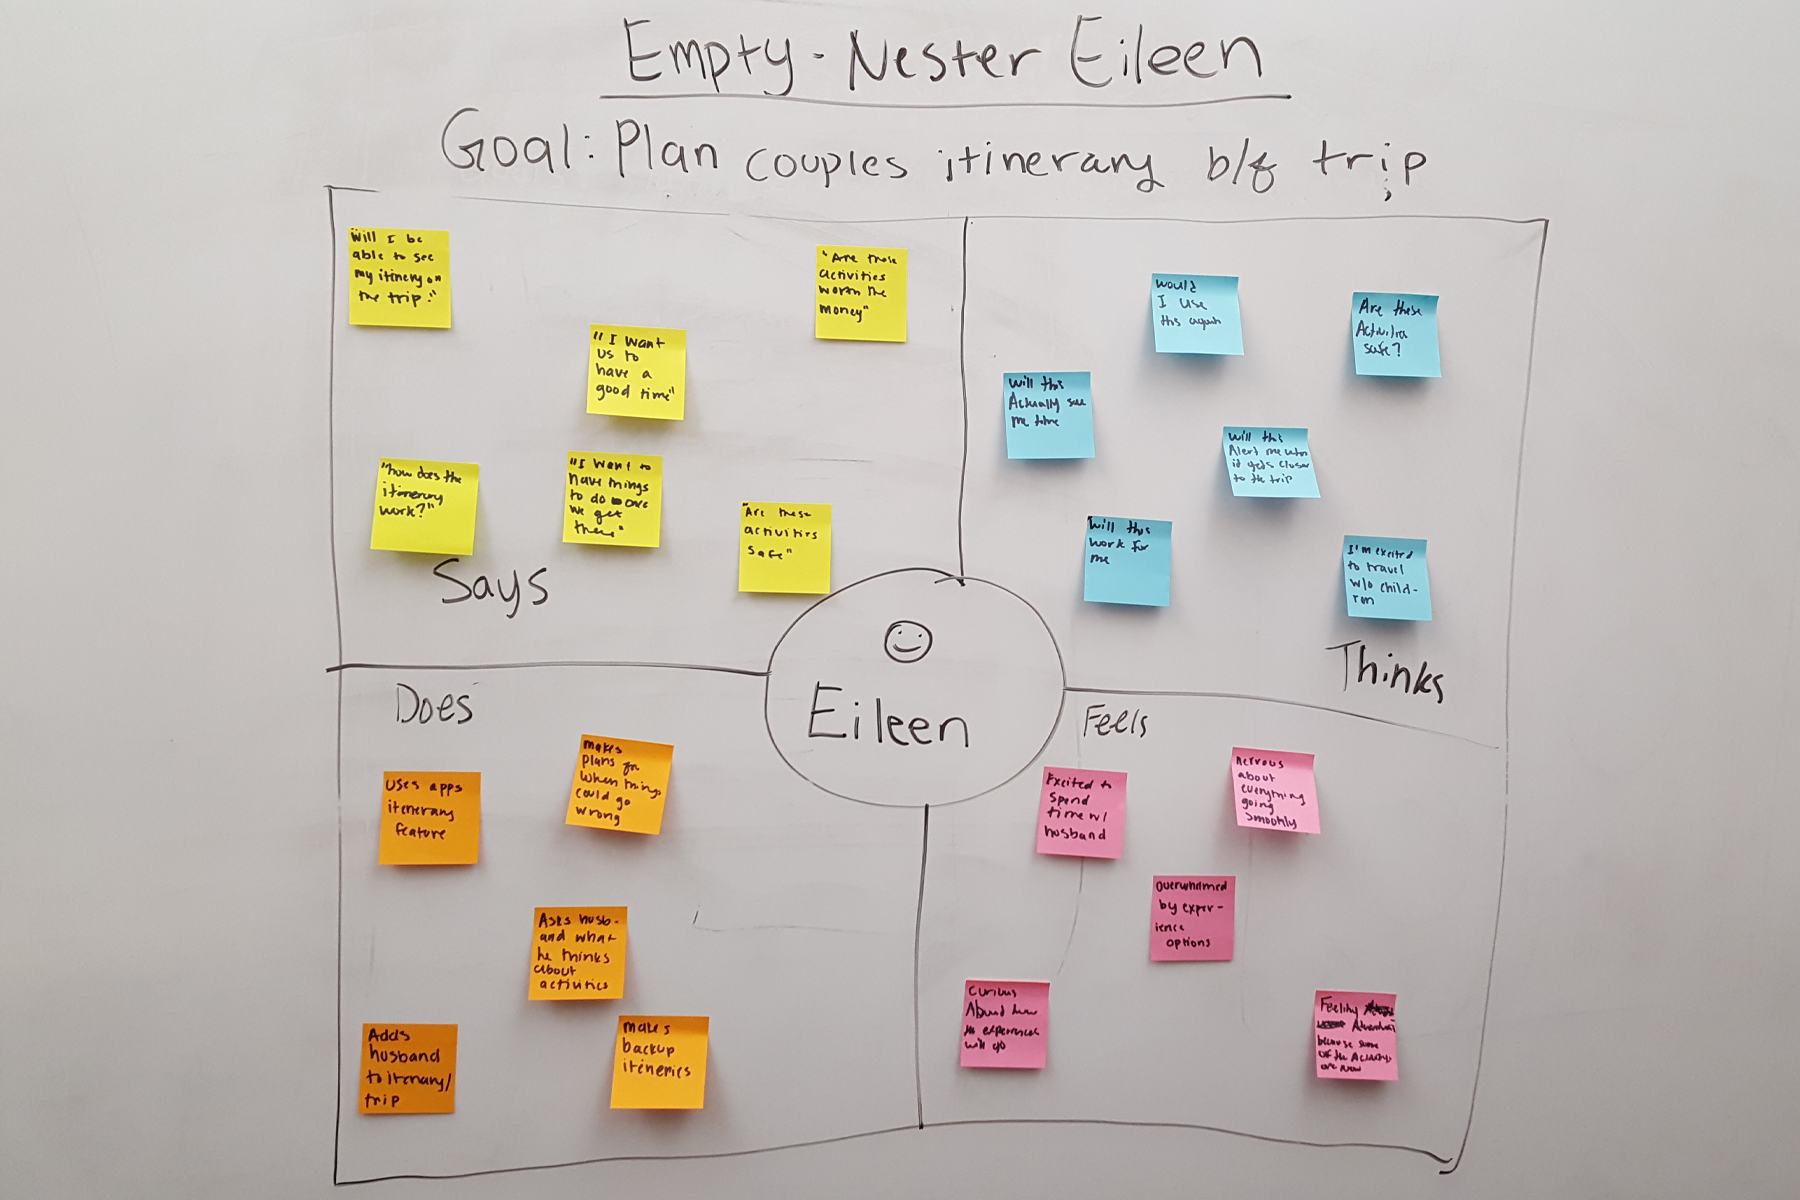 Empty-Nester Eileen
Goal: Plan couples itinerary b/f trip
Will I be
able to see
my itinery on
the trip."
"Are these
activities
worth the
money"
"I want
us to
have a
good time"
"how does the
itinerary
work?"
"I want to
have things
to do once
we get
there"
"Are these
activities
safe"
Says
would
I use
this again
Are these
Activities
safe?
Will this
Actually save
me time
Will this
Alert me when
it gets closer
to the trip
Will this
work for
me
I'm excited
to travel
w/o child-
ren
Thinks
Eileen
Does
uses apps
itenerary
feature
makes
plans for
when things
could go
wrong
Asks husb-
and what
he thinks
about
activities
Adds
husband
to itenary/
trip
makes
backup
iteneries
Feels
Excited to
spend
time w/
husband
nervous
about
everything
going
smoothly
overwhelmed
by exper-
ience
options
curious
About how
the experiences
will go
Feeling
because some
of the Activities
are new